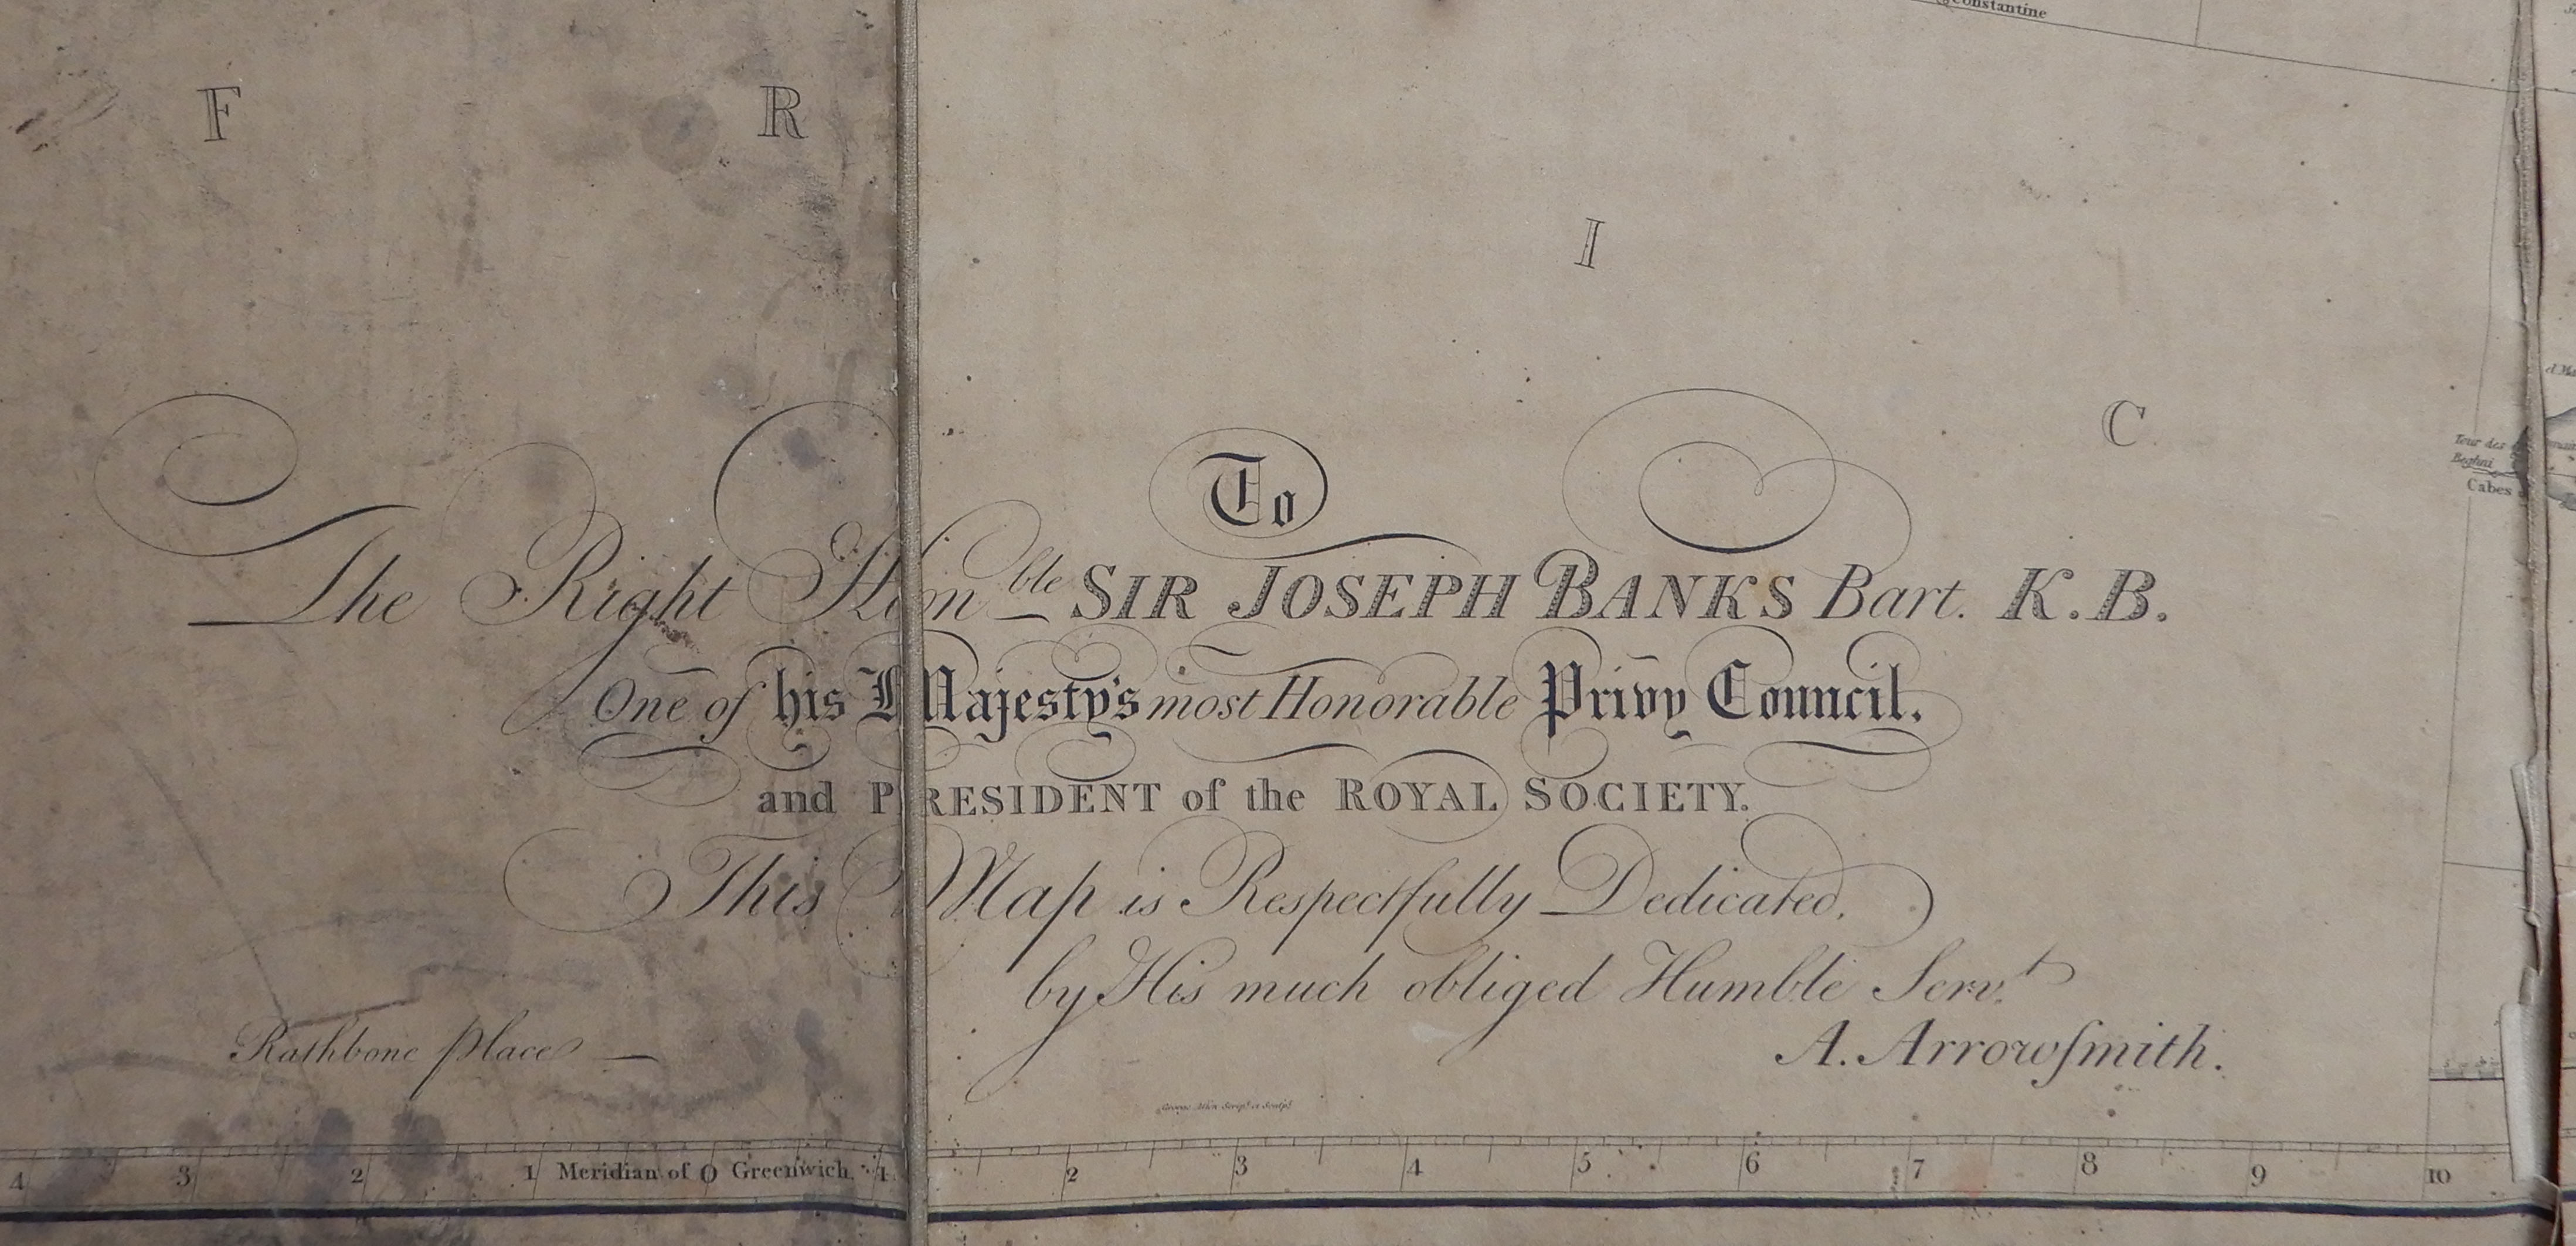 Constantine
F R I C
Tour des
Beghni
Cabes
To
The Right Honble SIR JOSEPH BANKS Bart. K.B.
One of his Majesty's most Honorable Privy Council.
and PRESIDENT of the ROYAL SOCIETY.
This Map is Respectfully Dedicated,
by His much obliged Humble Servt
A. Arrowſmith.
Rathbone place
George Allen Scripst et Sculpst
4 3 2 1 Meridian of 0 Greenwich. 1 2 3 4 5 6 7 8 9 10